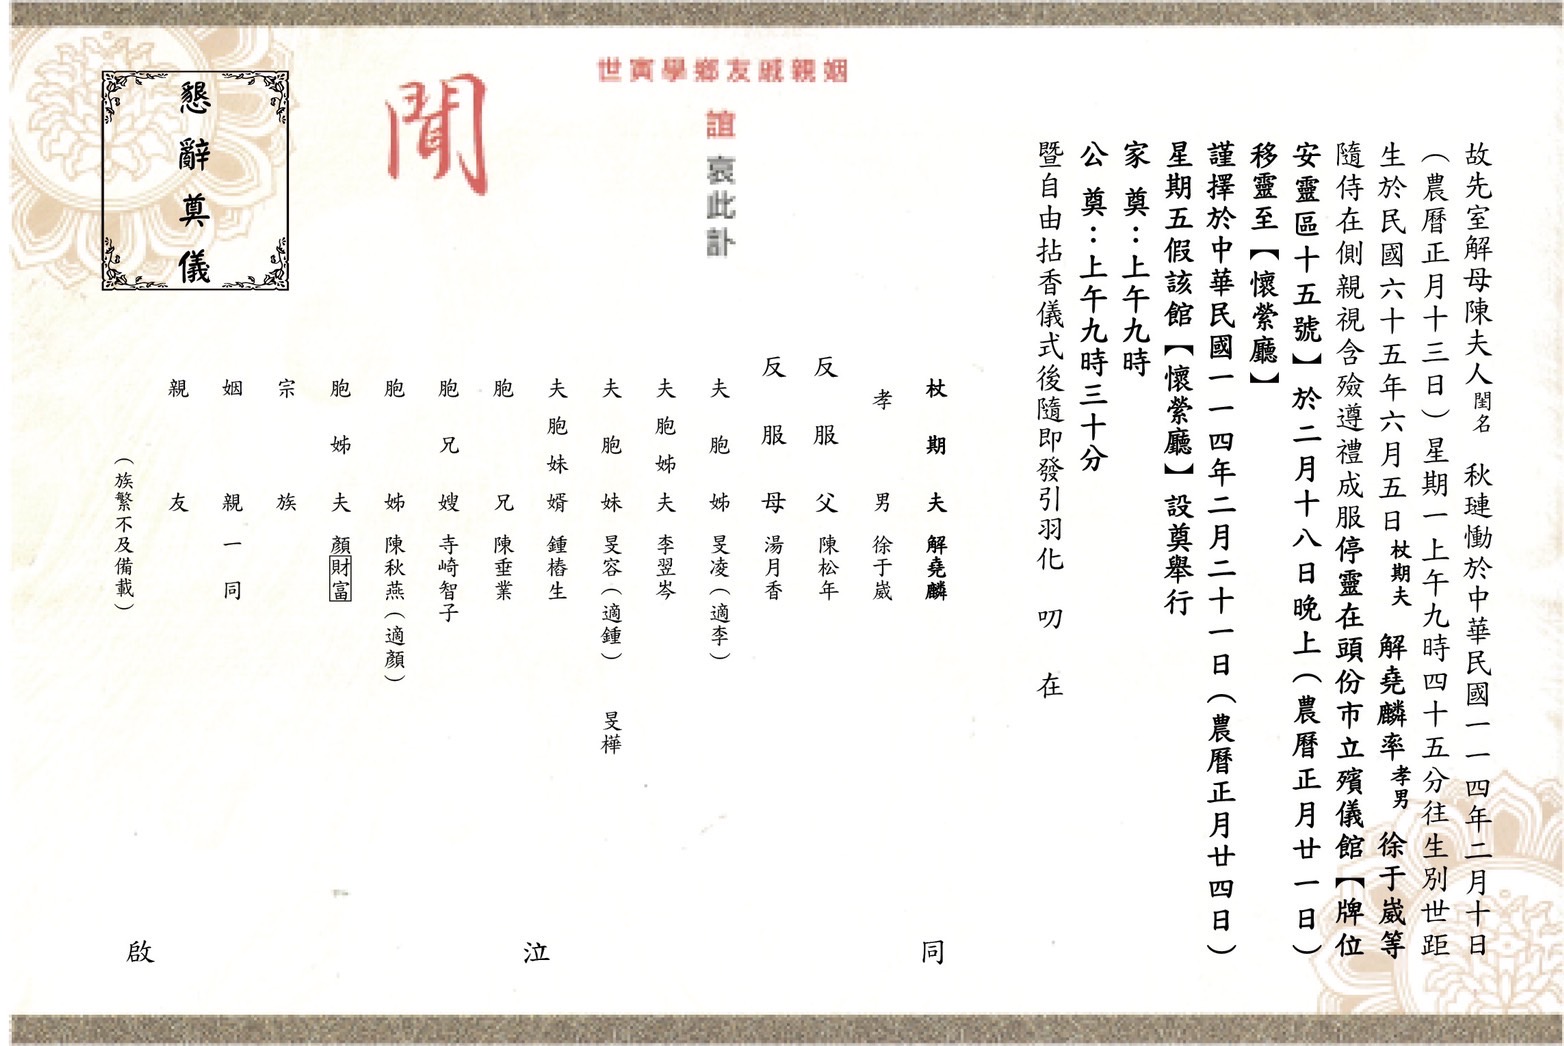 故先室解母陳夫人閨名 秋璉慟於中華民國一一四年二月十日
（農曆正月十三日）星期一上午九時四十五分往生別世距
生於民國六十五年六月五日杖期夫 解堯麟率孝男 徐于崴等
隨侍在側親視含殮遵禮成服停靈在頭份市立殯儀館【牌位
安靈區十五號】於二月十八日晚上（農曆正月廿一日）
移靈至【懷縈廳】
謹擇於中華民國一一四年二月二十一日（農曆正月廿四日）
星期五假該館【懷縈廳】設奠舉行
家奠：上午九時
公奠：上午九時三十分
暨自由拈香儀式後隨即發引羽化 叨 在
姻親戚友鄉學寅世
誼 哀此訃
聞
懇辭奠儀
杖期夫 解堯麟
孝男 徐于崴
反服父 陳松年
反服母 湯月香
夫胞姊 旻凌（適李）
夫胞姊夫 李翌岑
夫胞妹 旻容（適鍾） 旻樺
夫胞妹婿 鍾樁生
胞兄 陳垂業
胞兄嫂 寺崎智子
胞姊 陳秋燕（適顏）
胞姊夫 顏財富
宗族
姻親一同
親友
（族繁不及備載）
同 泣 啟